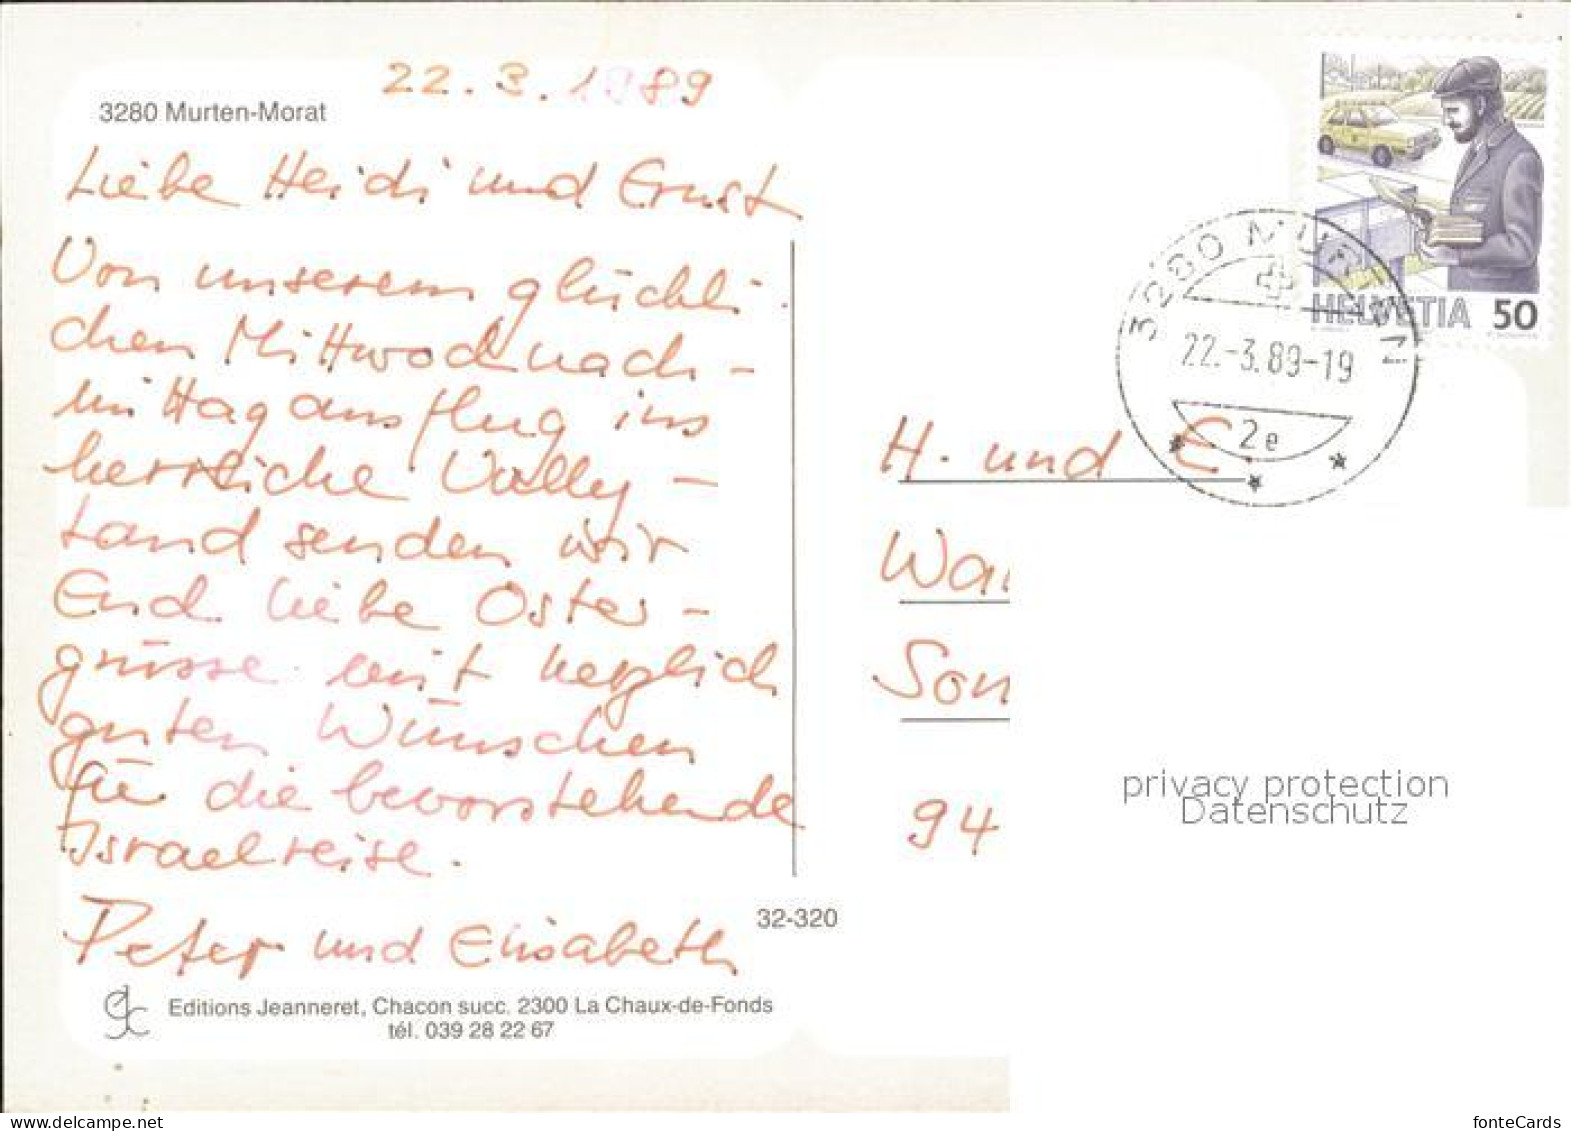 22.3.1989
3280 Murten-Morat
Liebe Heidi und Ernst
Von unserem glückli-
chen Mittwochnach-
mittagausflug ins
herrliche Vully-
land senden wir
Euch liebe Oster-
grüsse mit herzlich
guten Wünschen
für die bevorstehende
Israelreise.
Peter und Elisabeth
32-320
Editions Jeanneret, Chacon succ. 2300 La Chaux-de-Fonds
tél. 039 28 22 67
HELVETIA 50
3280 MURTEN 1
22.-3.89-19
2e
H. und E.
Wa
Son
94
privacy protection
Datenschutz
www.delcampe.net
fonteCards